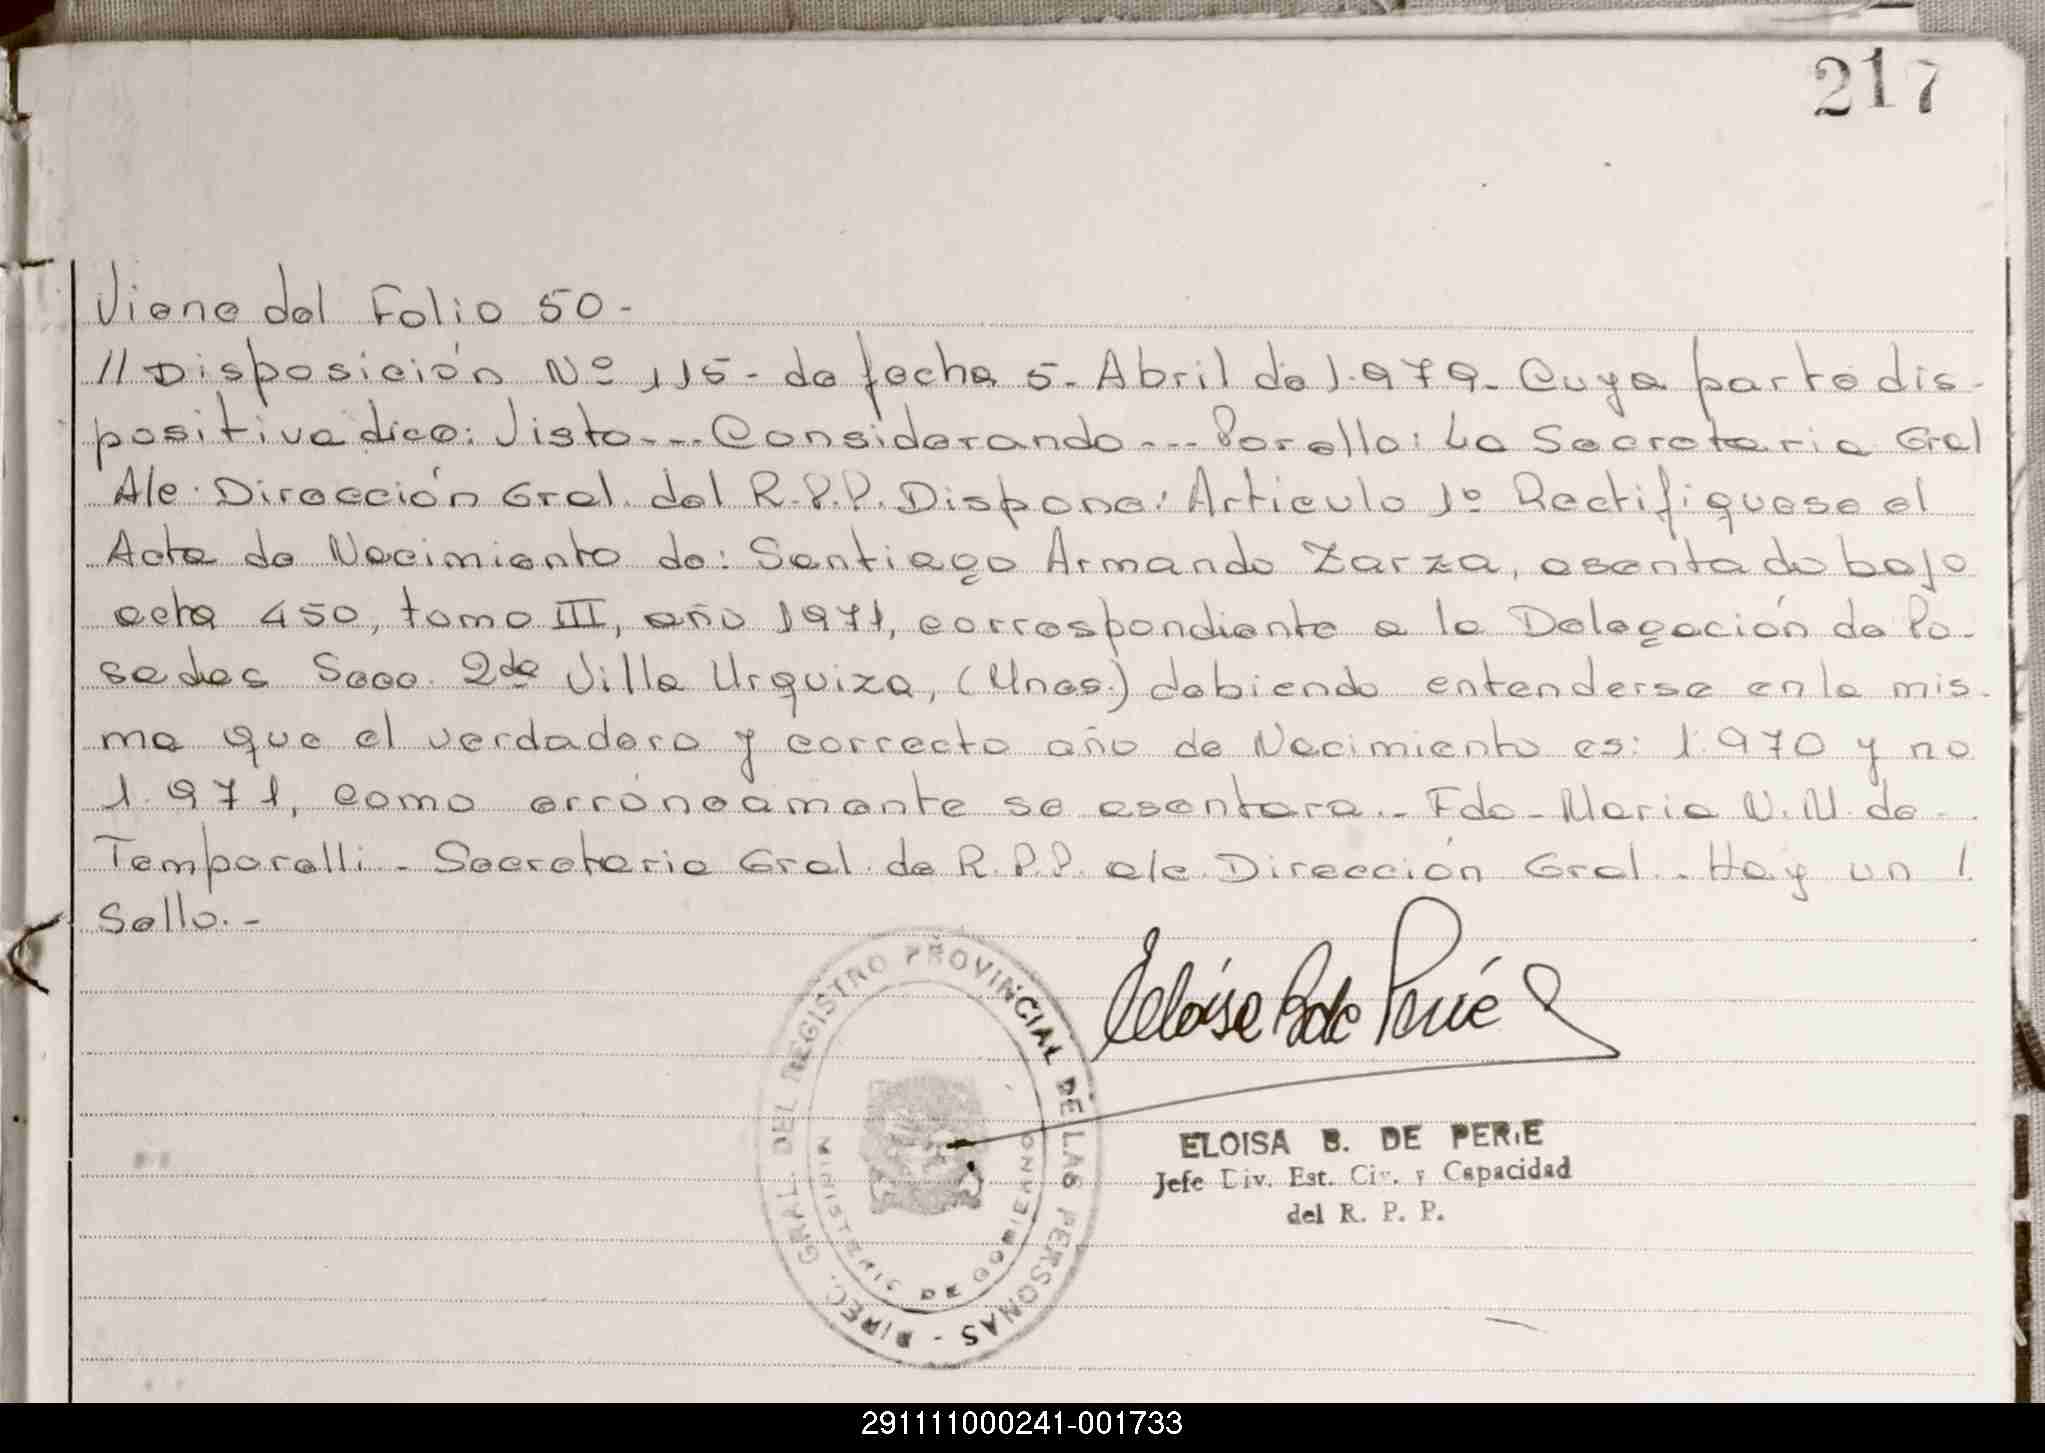 217
Viene del Folio 50-
// Disposición Nº 115- de fecha 5- Abril de 1.979- Cuya parte dis-
positiva dice: Visto--- Considerando--- Por ello: La Secretaria Gral
A/c Dirección Gral. del R.P.P. Dispone: Articulo 1º Rectifiquese el
Acta de Nacimiento de: Santiago Armando Zarza, asentado bajo
acta 450, tomo III, año 1971, correspondiente a la Delegación de Po-
sadas Secc. 2da Villa Urquiza, (Mnes.) debiendo entenderse en la mis-
ma que el verdadero y correcto año de Nacimiento es: 1.970 y no
1.971, como erróneamente se asentara.- Fdo- Maria N.N. de
Temporelli- Secretaria Gral. de R.P.P. a/c Dirección Gral.- Hay un
Sello.-
Eloísa B de Perié
DIREC. GRAL. DEL REGISTRO PROVINCIAL DE LAS PERSONAS -
MINISTERIO DE GOBIERNO
ELOISA B. DE PERIE
Jefe Div. Est. Civ. y Capacidad
del R. P. P.
291111000241-001733